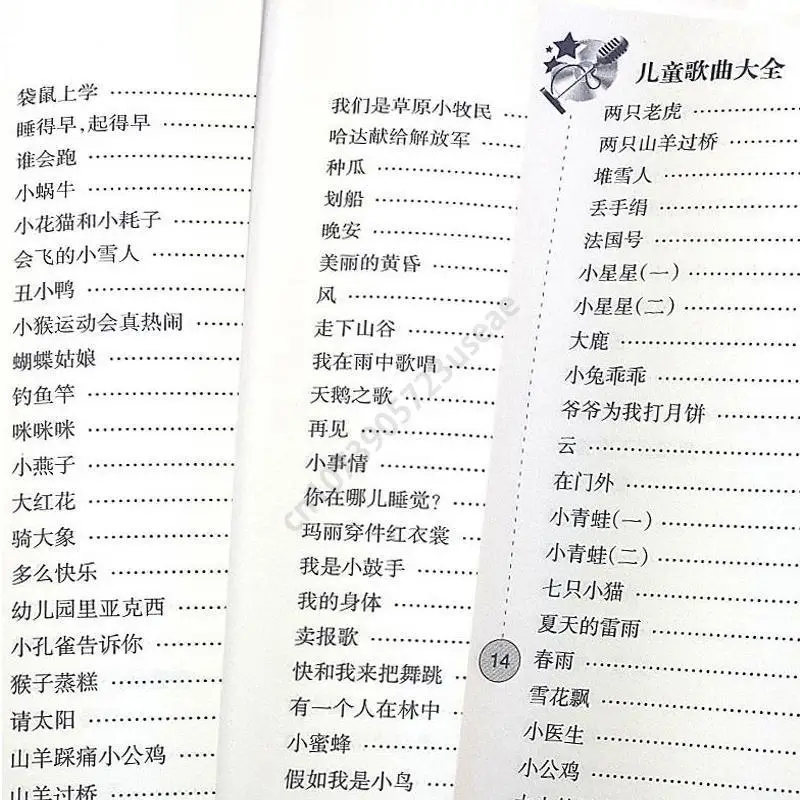 袋鼠上学
睡得早,起得早
谁会跑
小蜗牛
小花猫和小耗子
会飞的小雪人
丑小鸭
小猴运动会真热闹
蝴蝶姑娘
钓鱼竿
咪咪咪
小燕子
大红花
骑大象
多么快乐
幼儿园里亚克西
小孔雀告诉你
猴子蒸糕
请太阳
山羊踩痛小公鸡
山羊过桥
我们是草原小牧民
哈达献给解放军
种瓜
划船
晚安
美丽的黄昏
风
走下山谷
我在雨中歌唱
天鹅之歌
再见
小事情
你在哪儿睡觉?
玛丽穿件红衣裳
我是小鼓手
我的身体
卖报歌
快和我来把舞跳
有一个人在林中
小蜜蜂
假如我是小鸟
儿童歌曲大全
两只老虎
两只山羊过桥
堆雪人
丢手绢
法国号
小星星(一)
小星星(二)
大鹿
小兔乖乖
爷爷为我打月饼
云
在门外
小青蛙(一)
小青蛙(二)
七只小猫
夏天的雷雨
14
春雨
雪花飘
小医生
小公鸡
cn1073905723useae